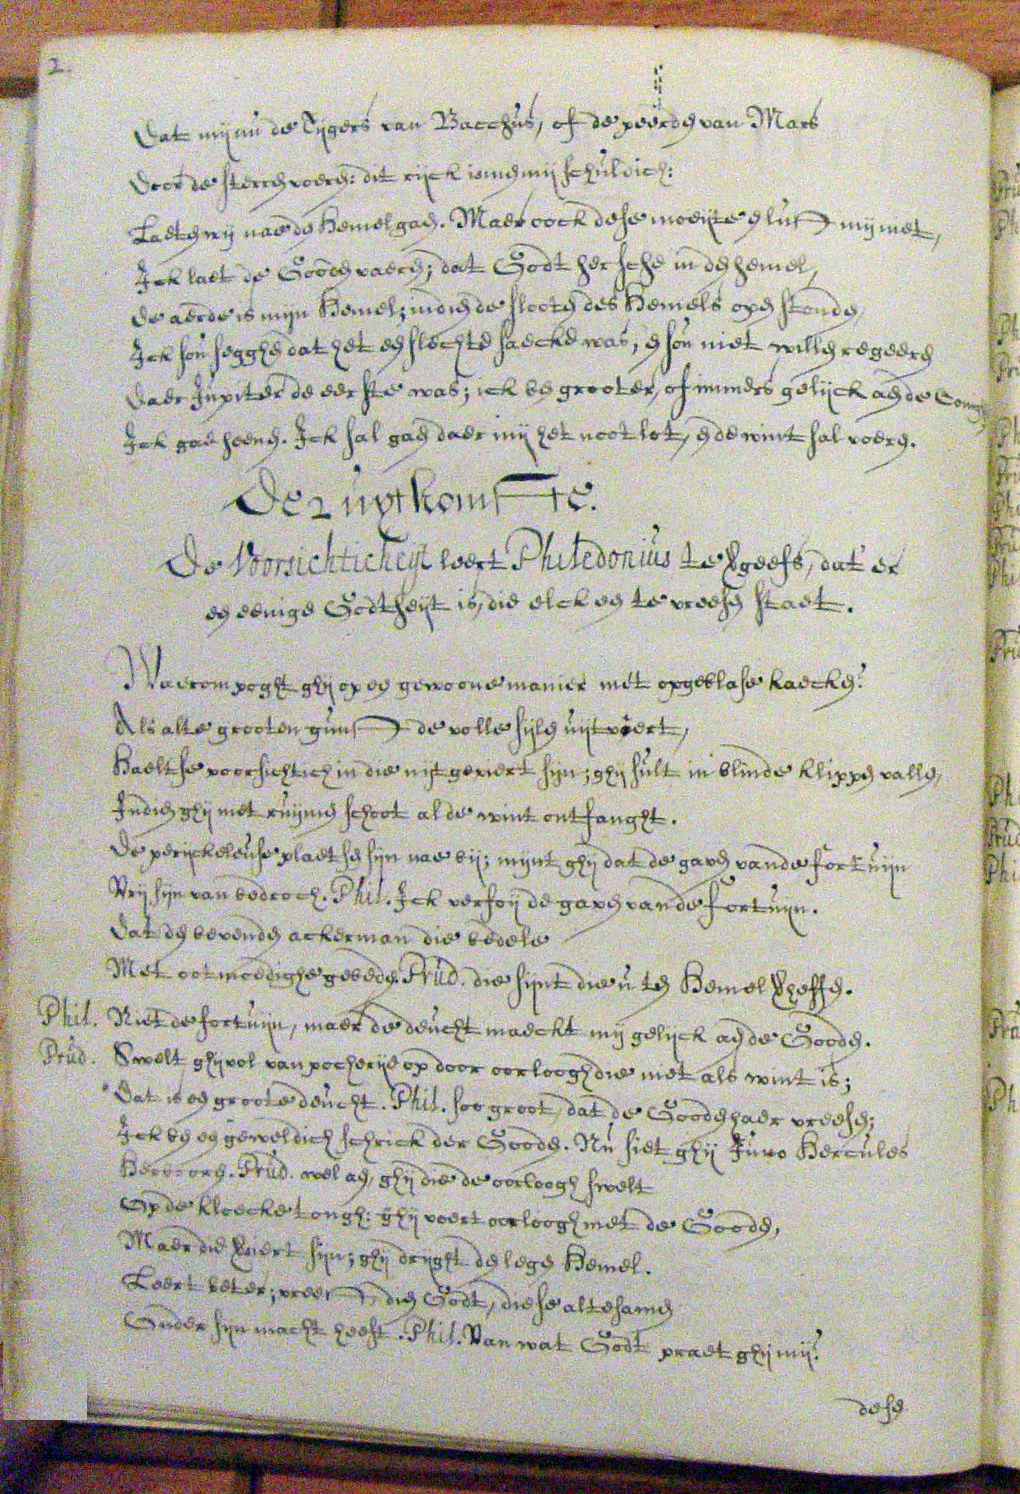 2.
Dat mij nu de Tijgers van Bacchus, of de peerden van Mars
Door de sterren voeren: dit rijck is mij schuldich:
Laeten wij nae den Hemel gaen. Maer oock dese moeijte en lust mij niet,
Ick laet de Gooden vaeren; dat Godt hersche in den hemel,
De aerde is mijn Hemel; indien de slooten des Hemels open stonden,
Ick sou segghen dat het een slechte saecke was, en sou niet willen regeeren
Daer Jupiter de eerste was; ick ben grooter, of immers gelijck aen de
Ick gae heenen. Ick sal gaen daer mij het noot lot, en de wint sal voeren.
De 2 uytkomste.
De Voorsichticheijt leert Philedonius te vergeefs, dat er
een eenige Godtheijt is, die elck een te vreesen staet.
Waerom poght ghij op een gewoone manier met opgeblase kaecken?
Als alte grooten gunst de volle sijlen uijtvoert,
Haeltse voorsichtich in die uijt geviert sijn; ghij sult in blinde klippen vallen,
Indien ghij met ruijmen schoot al de wint ontfanght.
De perijckeleuse plaetsen sijn nae bij; mijnt ghij dat de gaven vande fortuijn
Vrij sijn van bedroch. Phil. Ick verfoij de gaven van de fortuijn.
Dat den bevenden ackerman die bedele
Met ootmoedighe gebeden. Prud. die sijnt die u ten Hemel verheffen.
Phil. Niet de fortuijn, maer de deucht maeckt mij gelijck aen de Gooden.
Prud. Swelt ghij vol van pocherije op door oorlooghen die niet als wint is;
Dat is een groote deucht. Phil. soo groot, dat de Gooden haer vreesen;
Ick ben een geweldich schrick der Gooden. Nu siet ghij Juno Hercules
Herbooren. Prud. wel aen, ghij die de oorloogh swelt
Op de kloecke tongh: ghij voert oorloogh met de Gooden,
Maer die verkeert sijn; ghij dryght den legen Hemel.
Leert beter; vreest, dien Godt, die se altesamen
Onder sijn macht heeft. Phil. Van wat Godt praet ghij mij?
desen